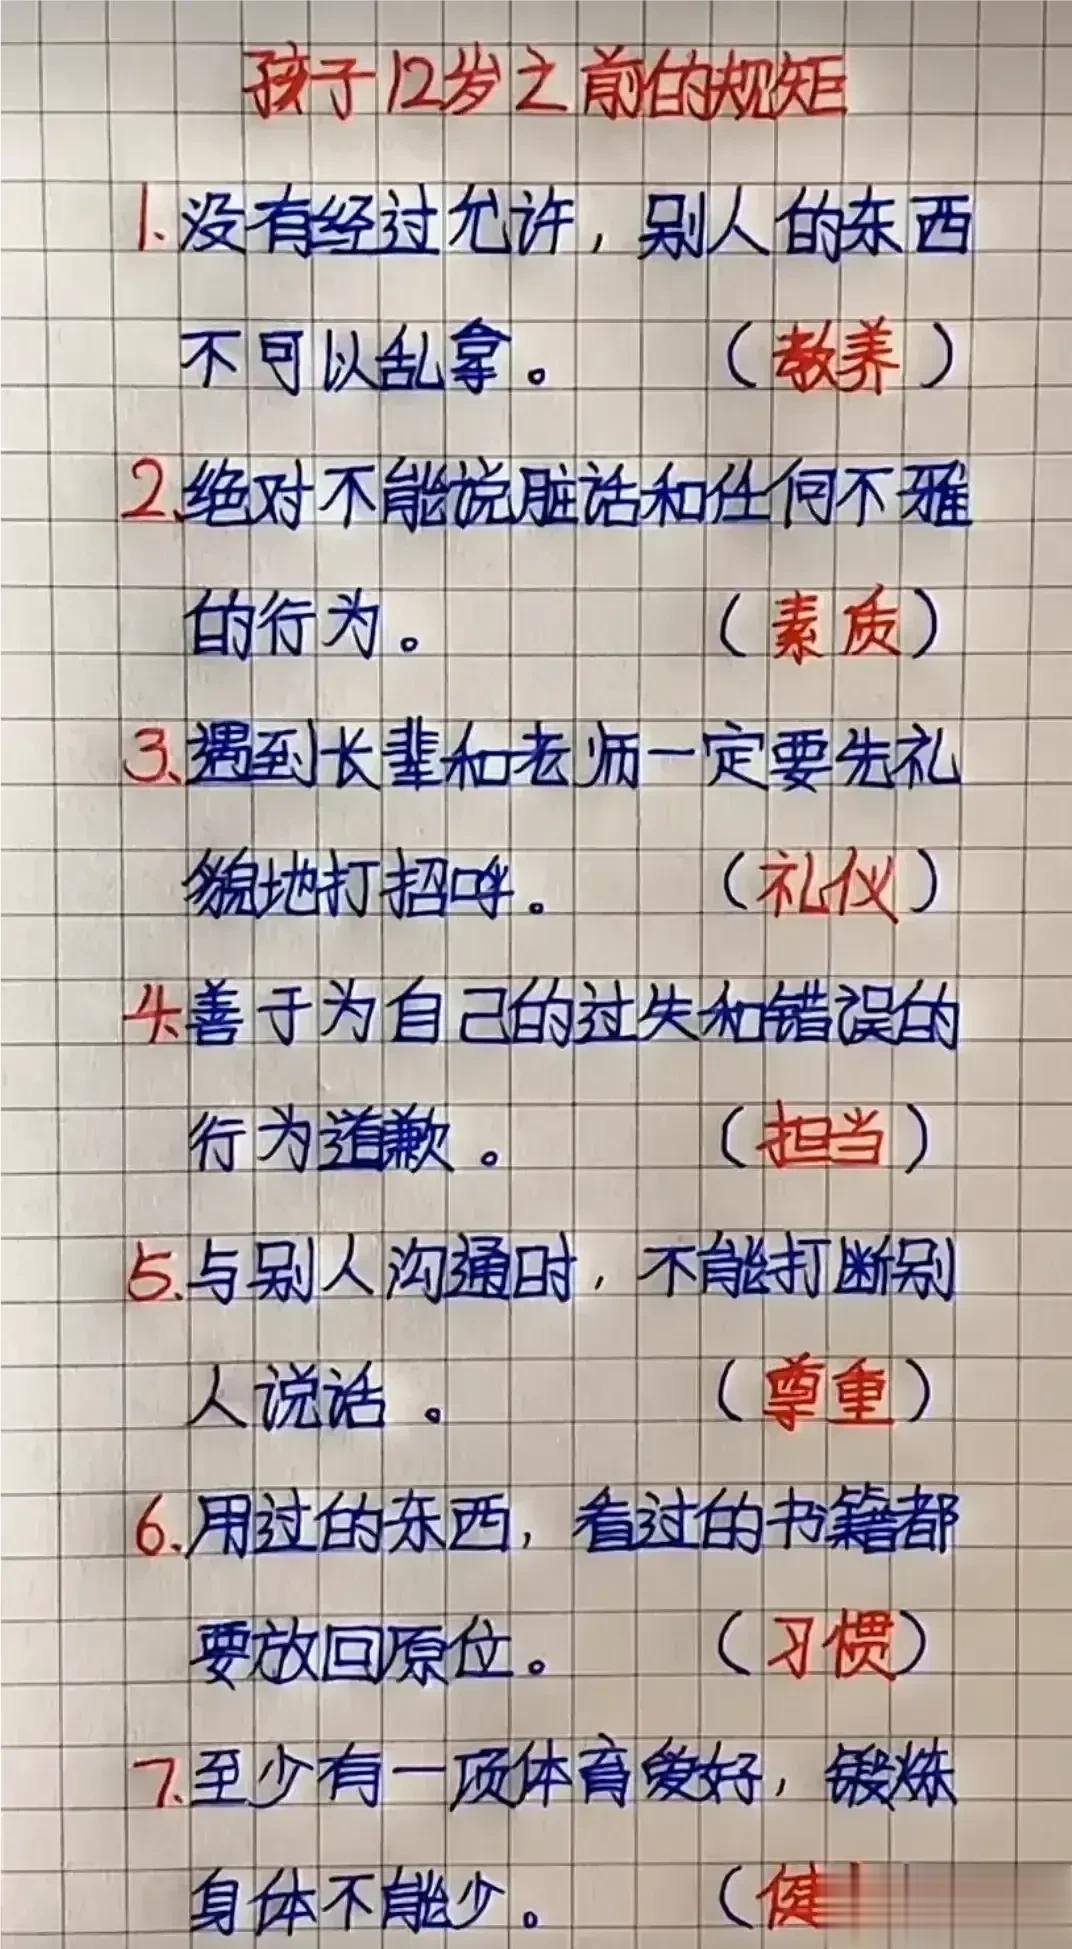 孩子12岁之前的规矩
1.没有经过允许，别人的东西
不可以乱拿。（教养）
2.绝对不能说脏话和任何不雅
的行为。（素质）
3.遇到长辈和老师一定要先礼
貌地打招呼。（礼仪）
4.善于为自己的过失和错误的
行为道歉。（担当）
5.与别人沟通时，不能打断别
人说话。（尊重）
6.用过的东西，看过的书籍都
要放回原位。（习惯）
7.至少有一项体育爱好，锻炼
身体不能少。（健